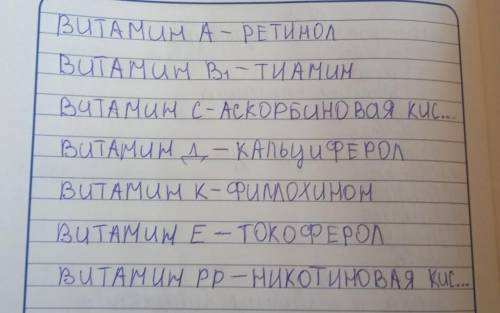 ВИТАМИН А – РЕТИНОЛ
ВИТАМИН В₁ – ТИАМИН
ВИТАМИН С – АСКОРБИНОВАЯ КИС...
ВИТАМИН Д – КАЛЬЦИФЕРОЛ
ВИТАМИН К – ФИЛЛОХИНОН
ВИТАМИН Е – ТОКОФЕРОЛ
ВИТАМИН РР – НИКОТИНОВАЯ КИС...